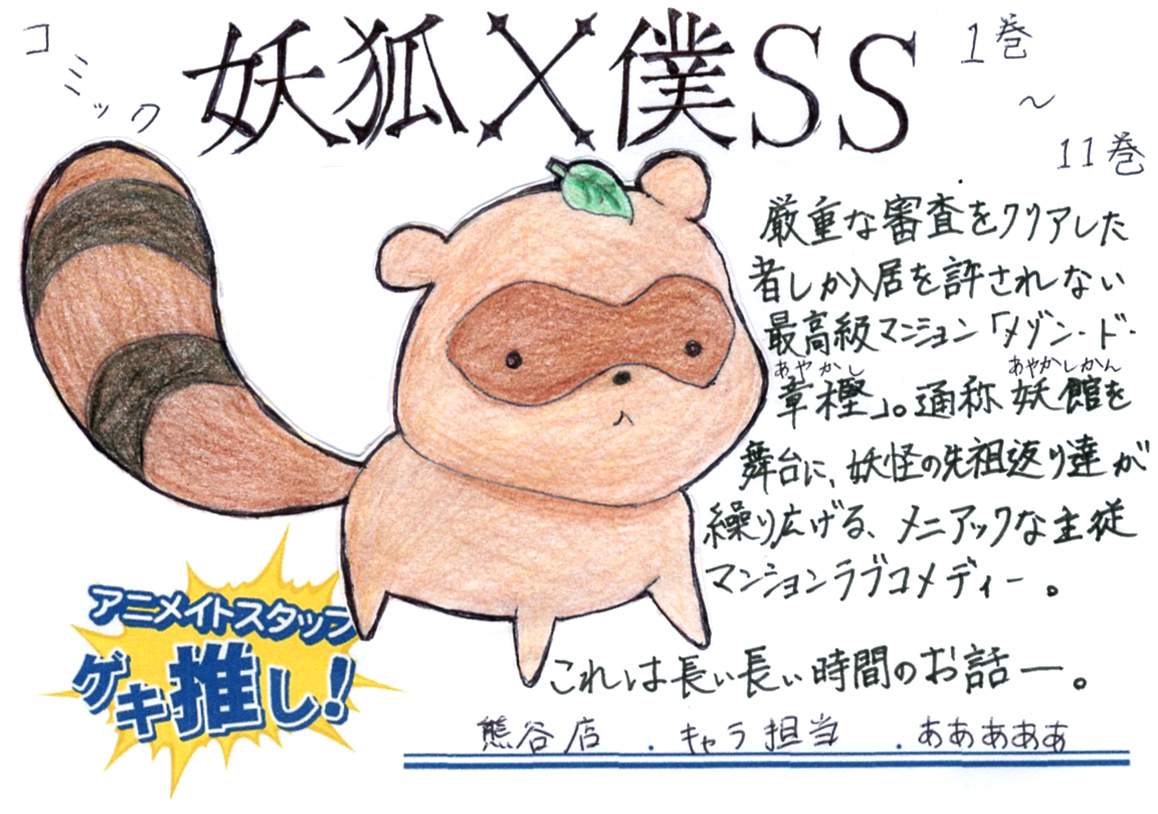 コミック
妖狐×僕SS
1巻
～
11巻
厳重な審査をクリアした
者しか入居を許されない
最高級マンション「メゾン・ド・
あやかし あやかしかん
章樫」。通称 妖館を
舞台に、妖怪の先祖返り達が
繰り広げる、メニアックな主従
マンションラブコメディー。
これは長い長い時間のお話ー。
アニメイトスタッフ
ゲキ推し!
熊谷店 . キャラ担当 . ああああぁ